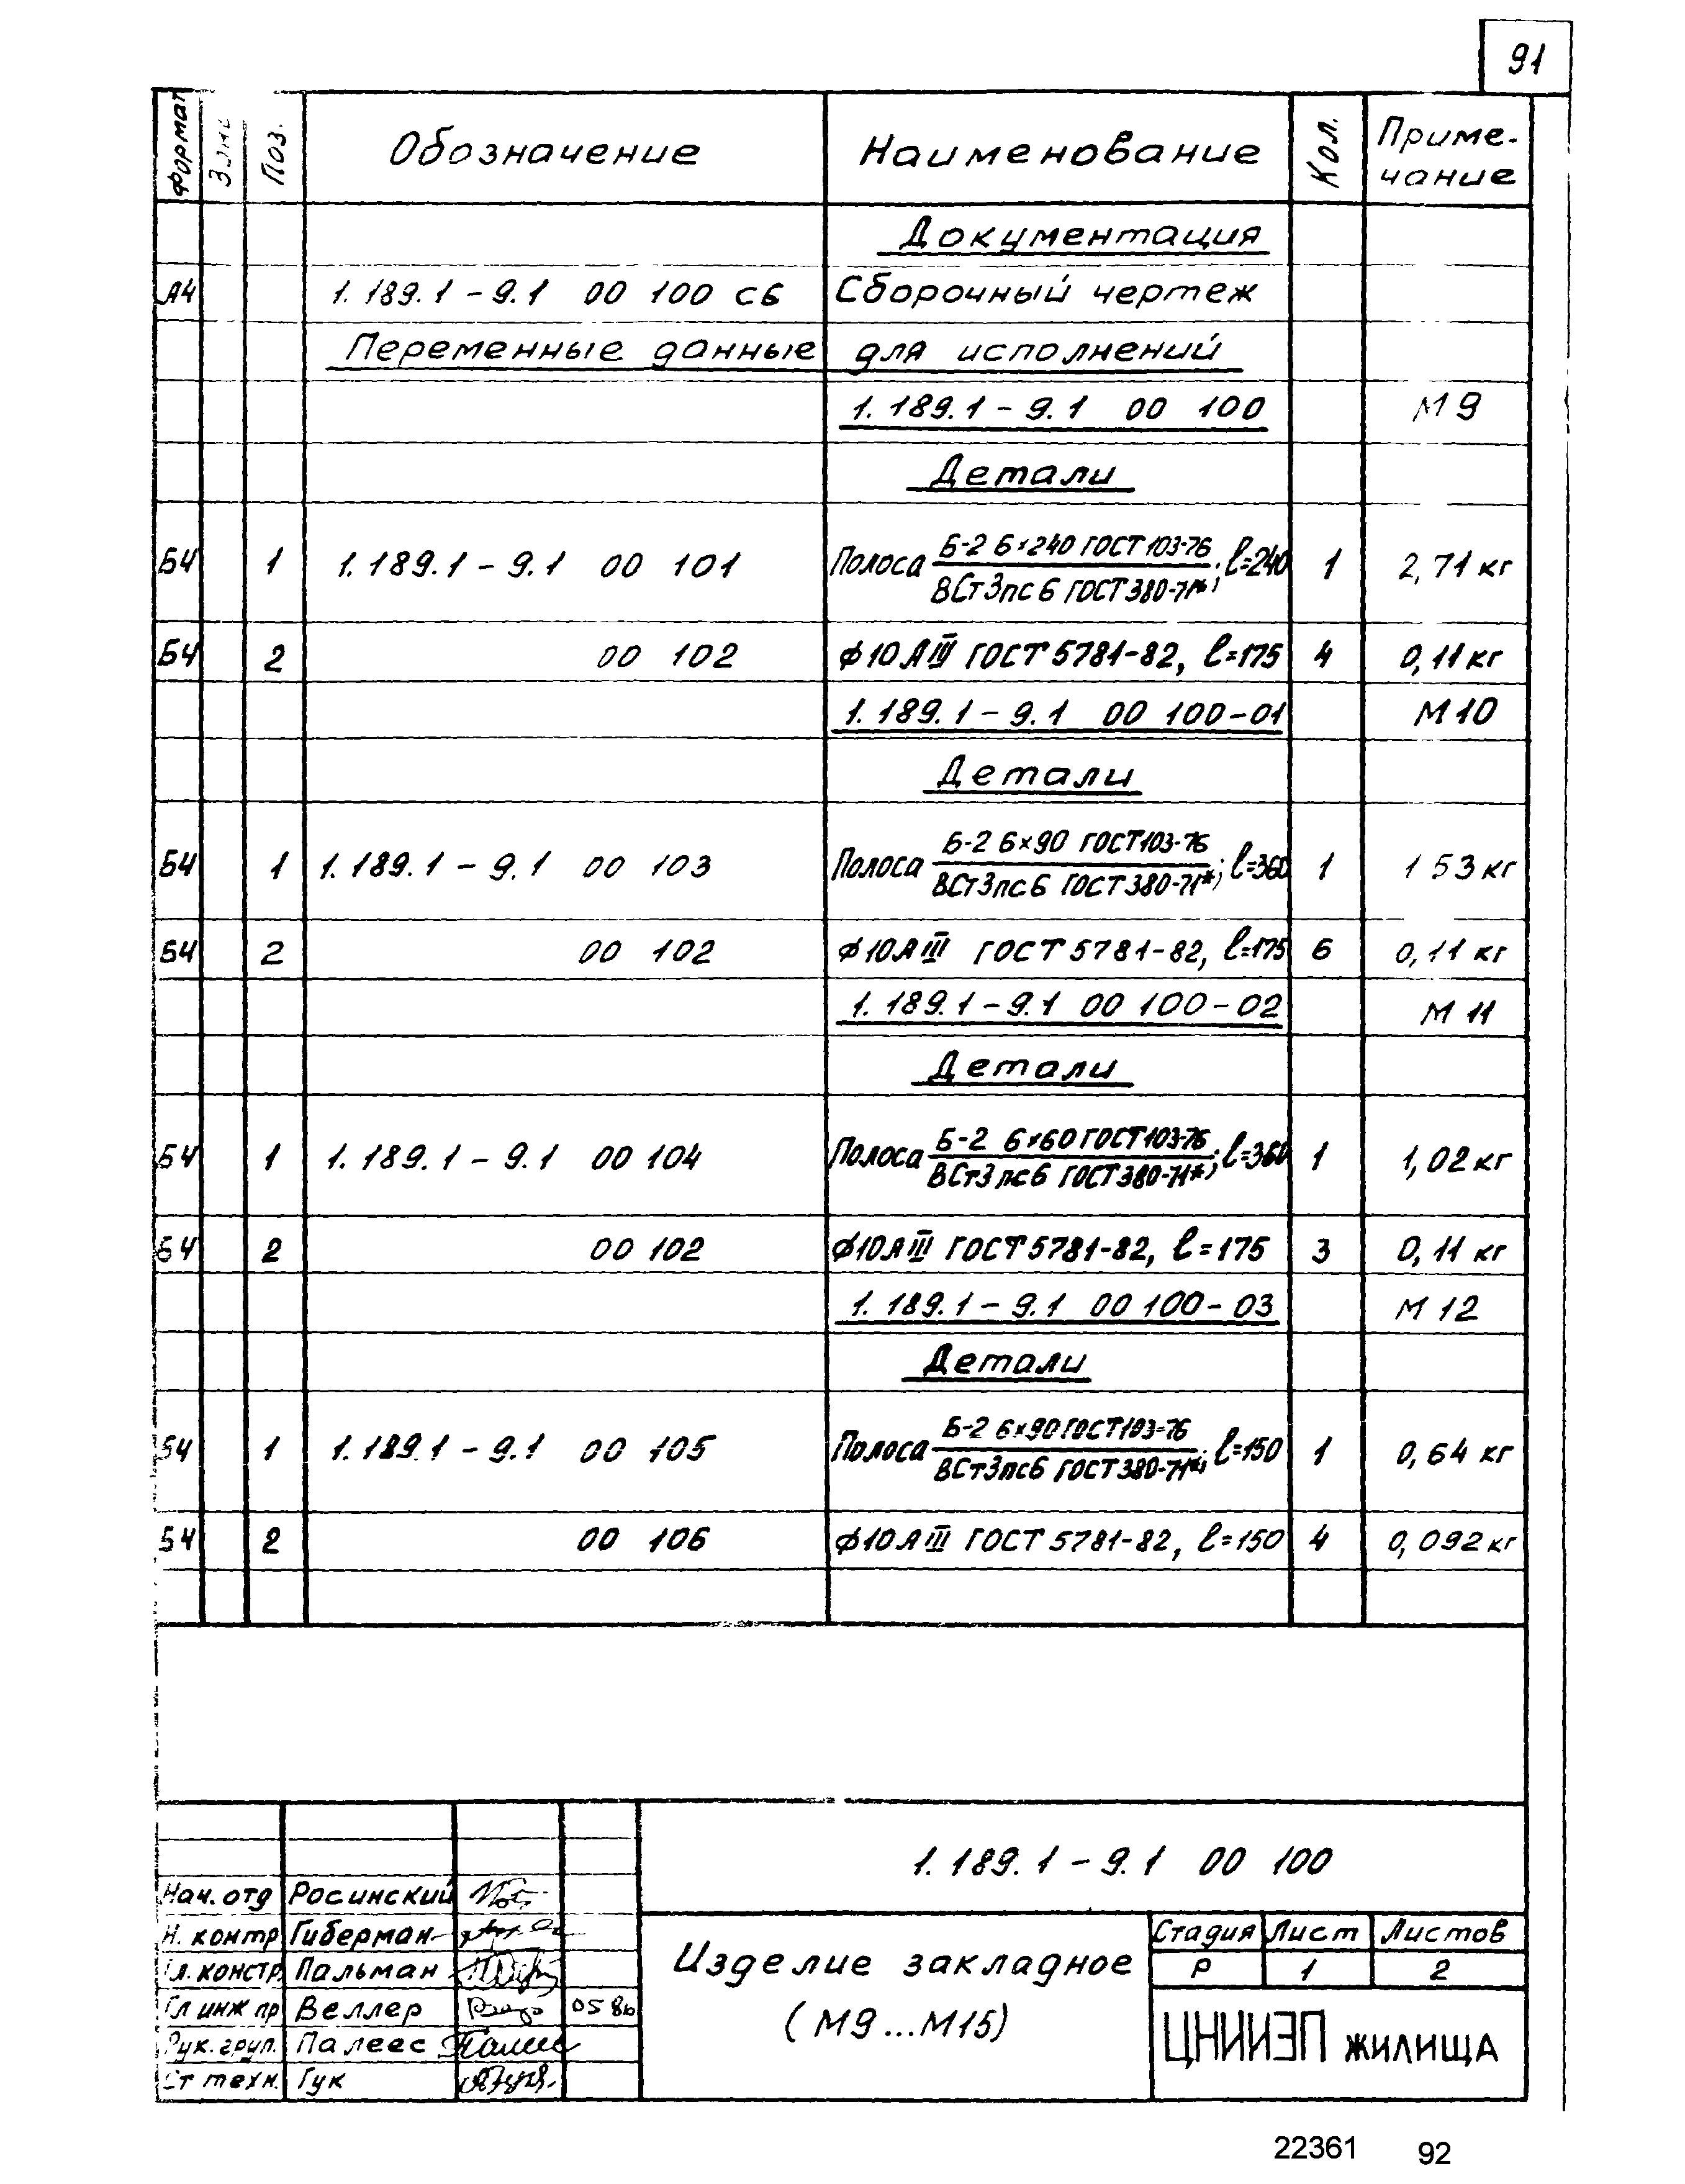 91
Формат Зона Поз. Обозначение Наименование Кол. Приме-
чание
Документация
А4 1.189.1-9.1 00 100 СБ Сборочный чертеж
Переменные данные для исполнений
1.189.1-9.1 00 100 М9
Детали
Б4 1 1.189.1-9.1 00 101 Полоса Б-2 6×240 ГОСТ 103-76 ; ℓ=240 1 2,71 кг
ВСт3пс6 ГОСТ 380-71*)
Б4 2 00 102 ϕ10АIII ГОСТ 5781-82, ℓ=175 4 0,11 кг
1.189.1-9.1 00 100-01 М10
Детали
Б4 1 1.189.1-9.1 00 103 Полоса Б-2 6×90 ГОСТ 103-76 ; ℓ=360 1 1 53 кг
ВСт3пс6 ГОСТ 380-71*)
Б4 2 00 102 ϕ10АIII ГОСТ 5781-82, ℓ=175 6 0,11 кг
1.189.1-9.1 00 100-02 М11
Детали
Б4 1 1.189.1-9.1 00 104 Полоса Б-2 6×60 ГОСТ 103-76 ; ℓ=360 1 1,02 кг
ВСт3пс6 ГОСТ 380-71*)
Б4 2 00 102 ϕ10АIII ГОСТ 5781-82, ℓ=175 3 0,11 кг
1.189.1-9.1 00 100-03 М12
Детали
Б4 1 1.189.1-9.1 00 105 Полоса Б-2 6×90 ГОСТ 103-76 ; ℓ=150 1 0,64 кг
ВСт3пс6 ГОСТ 380-71*)
Б4 2 00 106 ϕ10АIII ГОСТ 5781-82, ℓ=150 4 0,092 кг
1.189.1-9.1 00 100
Нач. отд Росинский
Н. контр Гиберман
Гл. констр Пальман
Гл инж пр Веллер 05 86
Рук. груп. Палеес
Ст техн. Гук
Изделие закладное
(М9...М15)
Стадия Лист Листов
Р 1 2
ЦНИИЭП жилища
22361 92